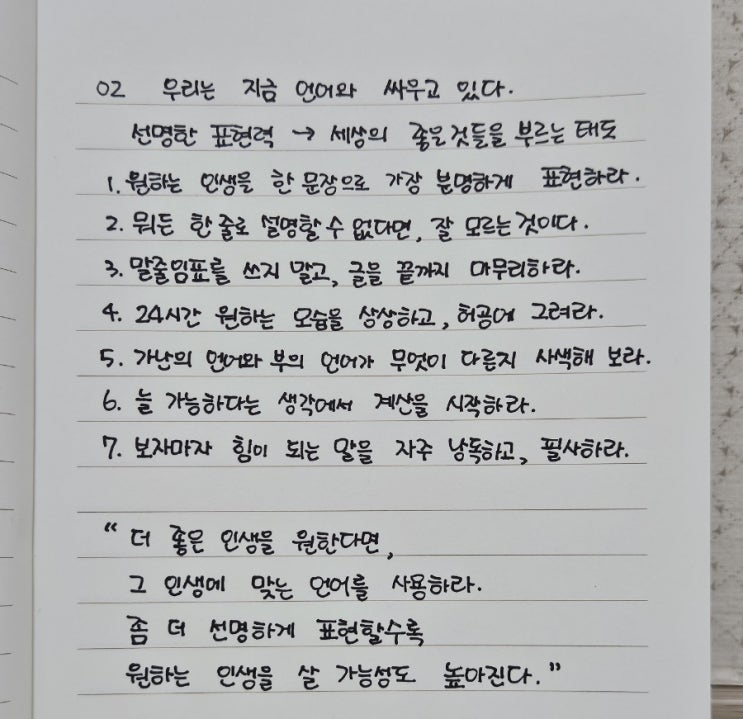 02 우리는 지금 언어와 싸우고 있다.
선명한 표현력 → 세상의 좋은것들을 부르는 태도
1. 원하는 인생을 한 문장으로 가장 분명하게 표현하라.
2. 뭐든 한 줄로 설명할 수 없다면, 잘 모르는 것이다.
3. 말줄임표를 쓰지 말고, 글을 끝까지 마무리하라.
4. 24시간 원하는 모습을 상상하고, 허공에 그려라.
5. 가난의 언어와 부의 언어가 무엇이 다른지 사색해 보라.
6. 늘 가능하다는 생각에서 계산을 시작하라.
7. 보자마자 힘이 되는 말을 자주 낭독하고, 필사하라.
“ 더 좋은 인생을 원한다면,
그 인생에 맞는 언어를 사용하라.
좀 더 선명하게 표현할수록
원하는 인생을 살 가능성도 높아진다.”